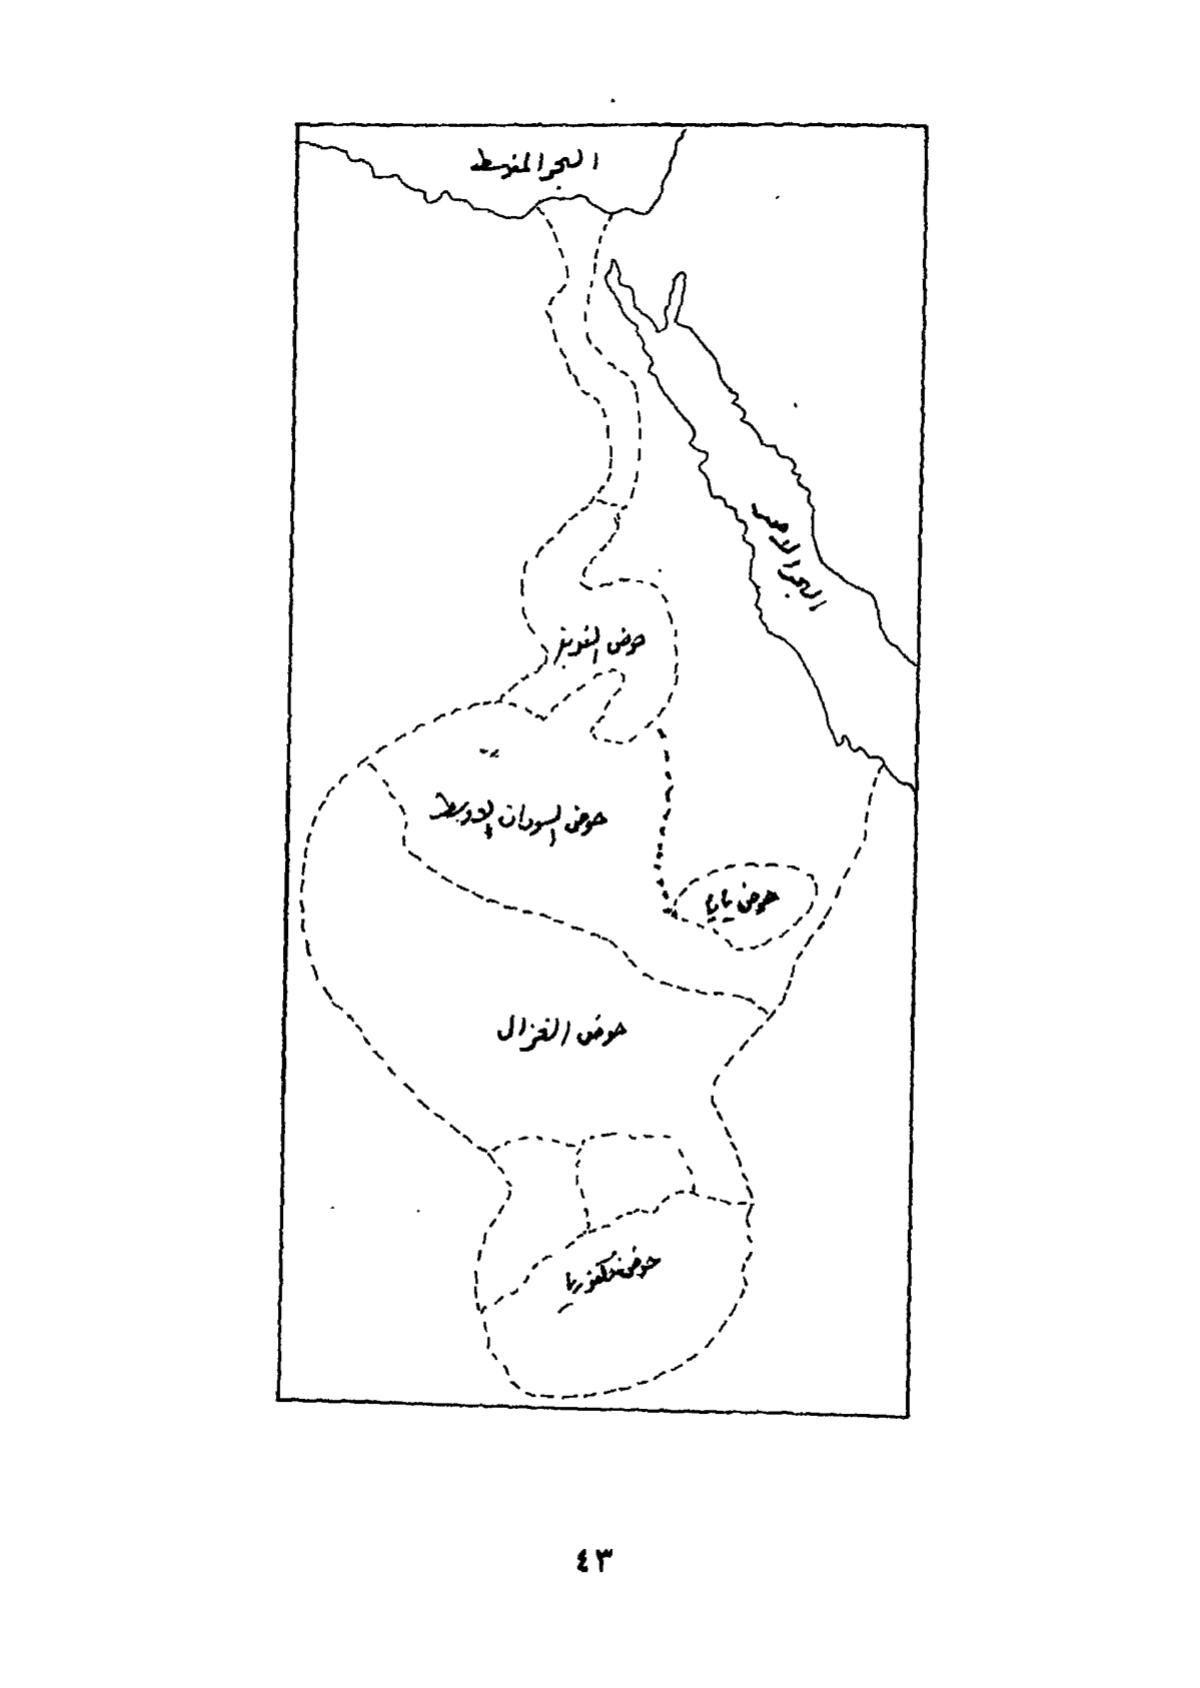 البحر المتوسط
البحر الاحمر
حوض النوبة
حوض السودان الاوسط
حوض يايا
حوض الغزال
حوض فكتوريا
٤٣